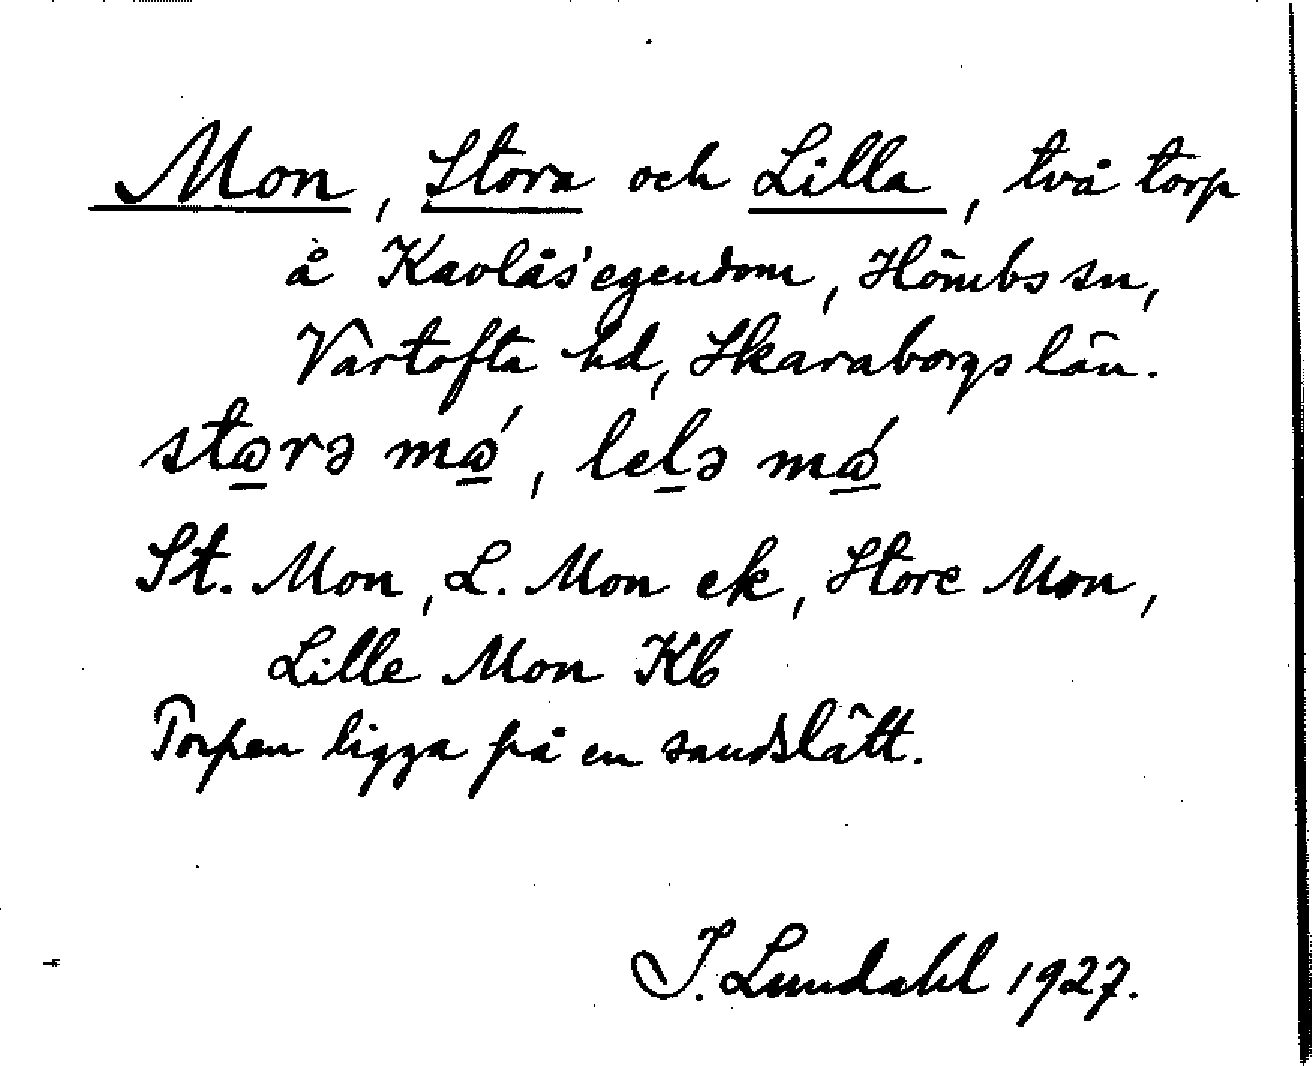 Mon, Stora och Lilla, två torp
å Kavlås' egendom, Hömbs sn,
Vartofta hd, Skaraborgs län.
St. Mon, L. Mon ek, Store Mon,
Lille Mon Kb
Torpen ligga på en sandslätt.
J. Lundahl 1927.